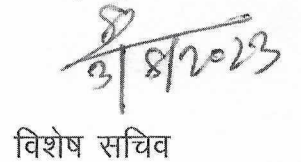 3/8/2023
विशेष सचिव